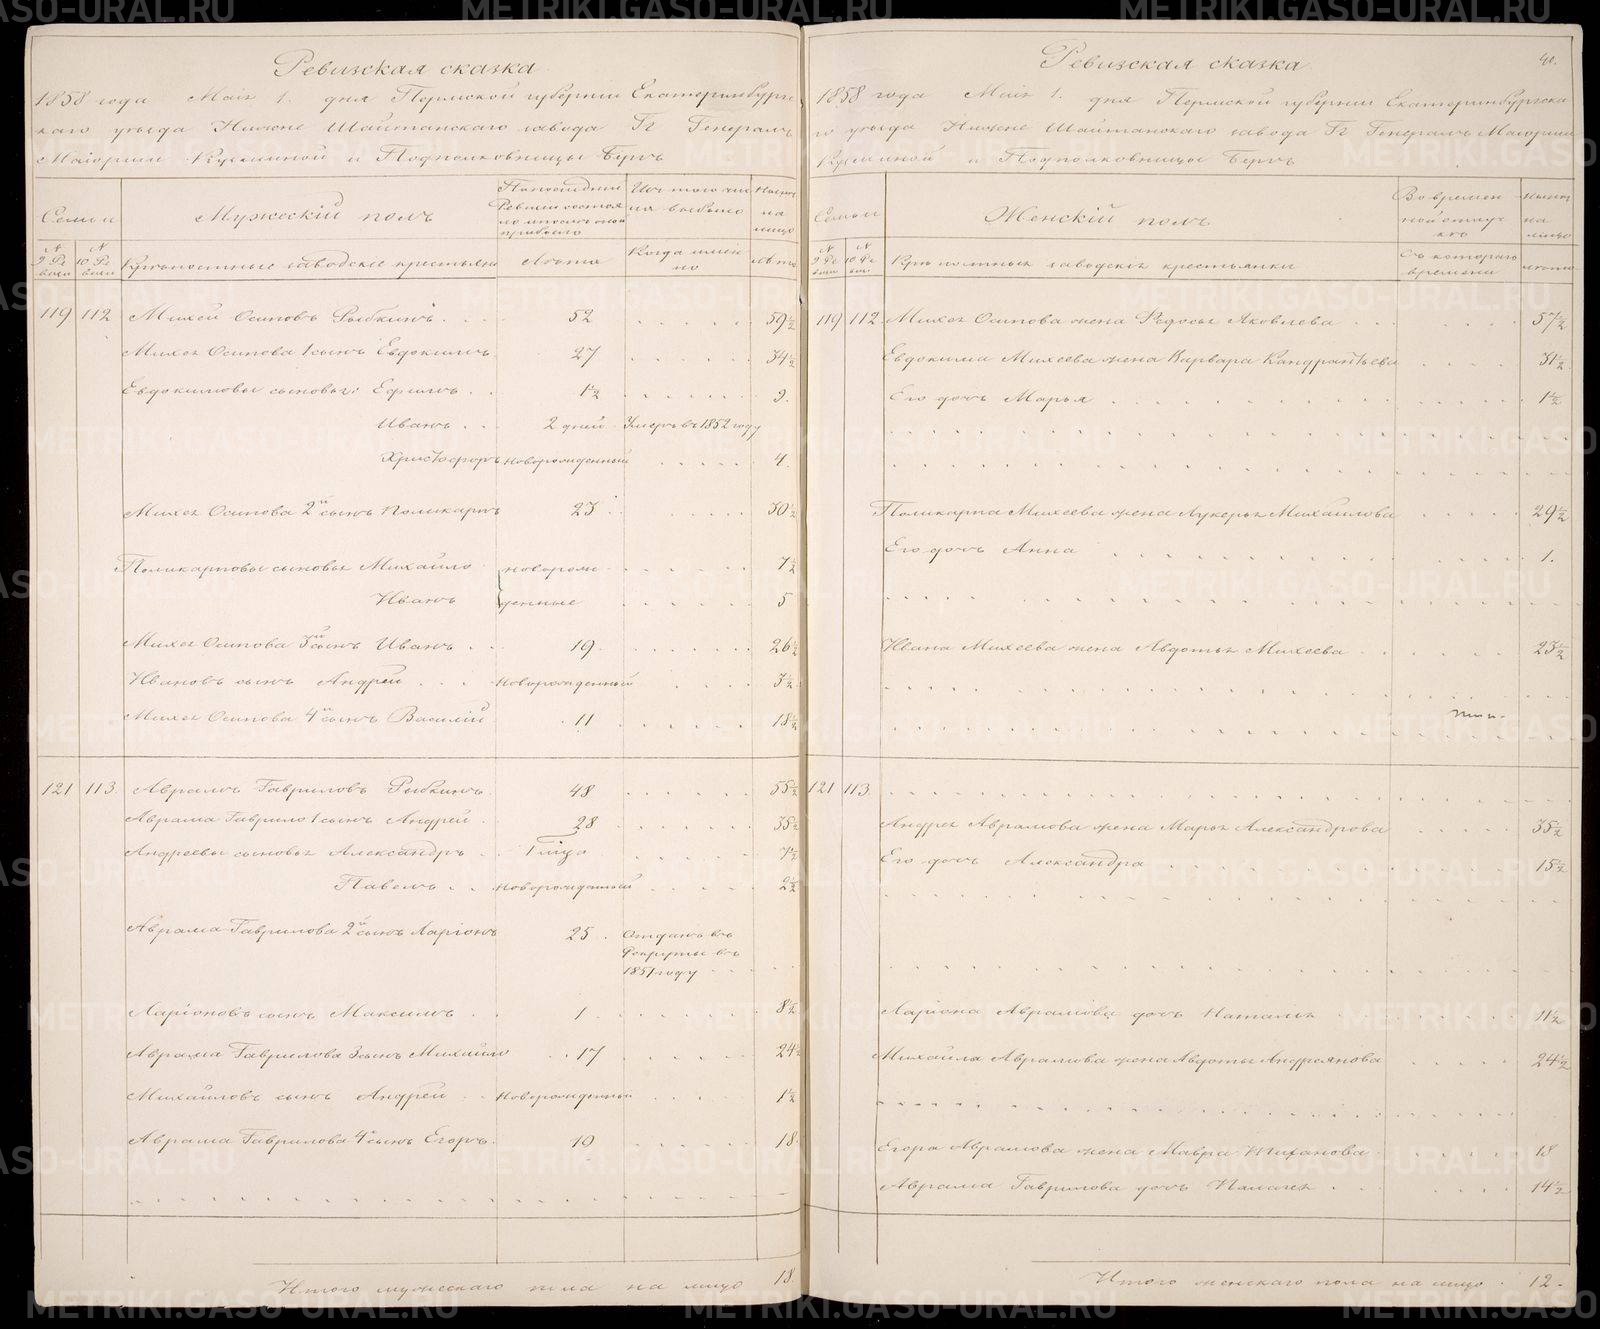 Ревизская сказка
1858 года Маія 1. дня Пермской губерніи Екатеринбургс
каго уезда Нижне Шайтанскаго завода Гг Генералъ
Маіорши Кузьминой и Подполковницы Бергъ
Семьи
Мужескій полъ
N 9 Ре визіи
N 10 Ре визіи
Крѣпостные заводскіе крестьяне
Лѣта
Когда имен но
лѣта
119 112 Михей Осиповъ Рыбкинъ. 52 59½
Михея Осипова 1 сынъ Евдокимъ 27 34½
Евдокимовы сыновья: Ефимъ 1½ 9.
Иванъ 2 дней Умеръ въ 1852 году
Христофоръ Новорожденный 4.
Михея Осипова 2й сынъ Поликарпъ 23 30½
Поликарповы сыновья Михайло новорож 7½
Иванъ денные 5
Михея Осипова 3й сынъ Иванъ 19 26½
Ивановъ сынъ Андрей Новорожденный 3½
Михея Осипова 4й сынъ Василій 11 18½
121 113. Аврамъ Гавриловъ Рыбкинъ. 48 55½
Аврама Гаврило 1 сынъ Андрей 28 35½
Андреевы сыновья Александръ 7½
Павелъ Новорожденный 2½
Аврама Гаврилова 2й сынъ Ларіонъ 25 Отданъ въ
Рекруты въ
1851 году
Ларіоновъ сынъ Максимъ 1 8½
Аврама Гаврилова 3 сынъ Михайло 17 24½
Михайловъ сынъ Андрей Новорожденный 1½
Аврама Гаврилова 4й сынъ Егоръ. 10 18.
Итого мужескаго пола на лицо 18.
Ревизская сказка
40.
1858 года Маія 1. дня Пермской губерніи Екатеринбургска
го уезда Нижне Шайтанскаго завода Гг Генералъ Маіорши
Кузьминой и Подполковницы Бергъ
Семьи
Женскій полъ
Во времен ной отлуч кѣ
N 9 Ре визіи
N 10 Ре виз.
Съ котораго времени
119 112 Михея Осипова жена Федосья Яковлева 57½
Евдокима Михеева жена Варвара Кандратьева 31½
Его дочь Марья 1½
Поликарпа Михеева жена Лукерья Михайлова 29½
Его дочь Анна 1.
Ивана Михеева жена Авдотья Михеева 23½
121 113.
Андрея Аврамова жена Марья Александрова 35½
Его дочь Александра 15½
Ларіона Аврамова дочь Наталья 11½
Михайла Аврамова жена Авдотья Андреянова 24½
Егора Аврамова жена Мавра 18
Аврама Гаврилова дочь Палагея 14½
Итого женскаго пола на лицо 12.
METRIKI.GASO-URAL.RU